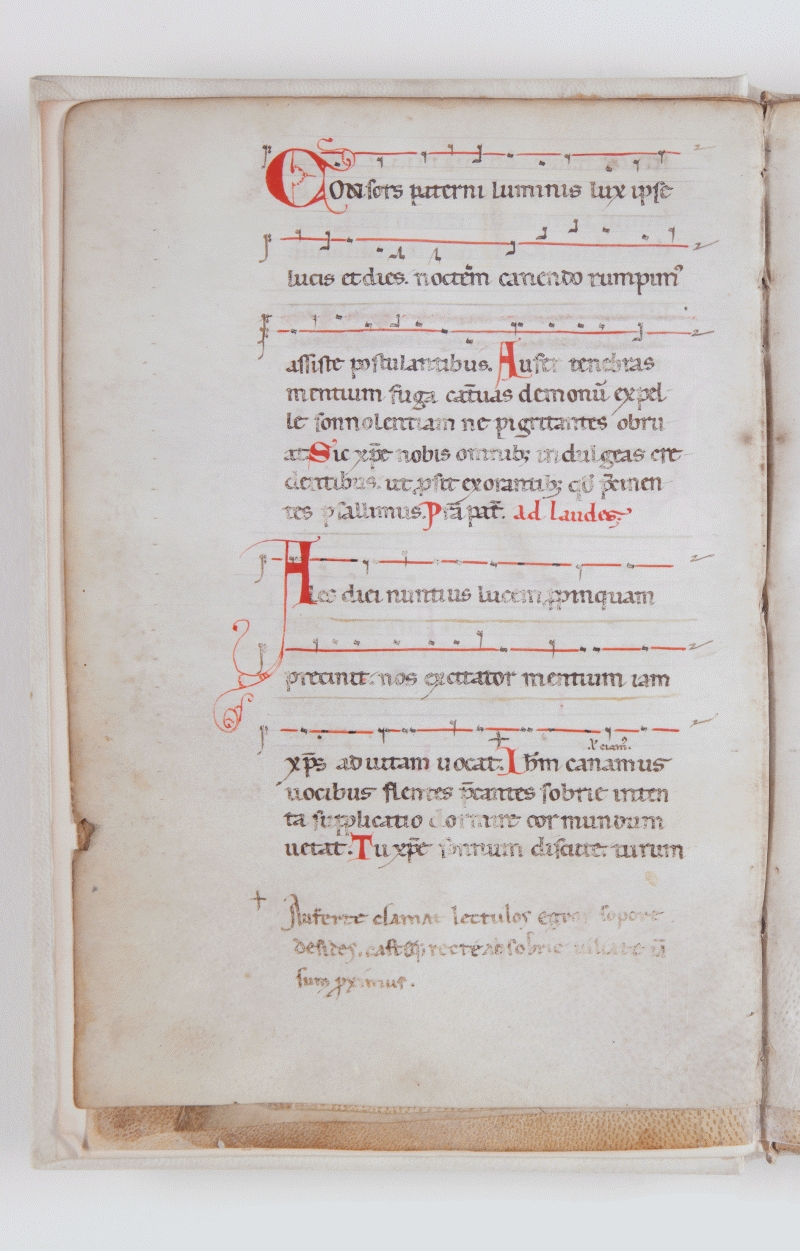 Consors paterni luminis lux ipse
lucis et dies. noctem̄ canendo rumpim᷒
assiste postulantibus. Aufer tenebras
mentium fuga cat̄uas demonū expel
le sonnolentiam ne pigritantes obru
at. Sic xp̄e nobis omnib; indulgeas cre
dentibus. ut ꝓsit exorantib; qđ p̄cinen
tes psallimus. Pr̄a pat̄. ad laudes.
Ales diei nuntius lucem ꝓpinquam
precinit. nos excitator mentium iam
xp̄s ad uitam uocat. Ihm̄ canamus
uocibus flentes p̄cantes sobrie inten
ta supplicatio dormire cor mundum
uetat. Tu xp̄e somnum discute. tu rum
Auferte clamat lectulos egros sopore
desides. castiq; recte ac sobrie uigilate iā
sum ꝓximus.